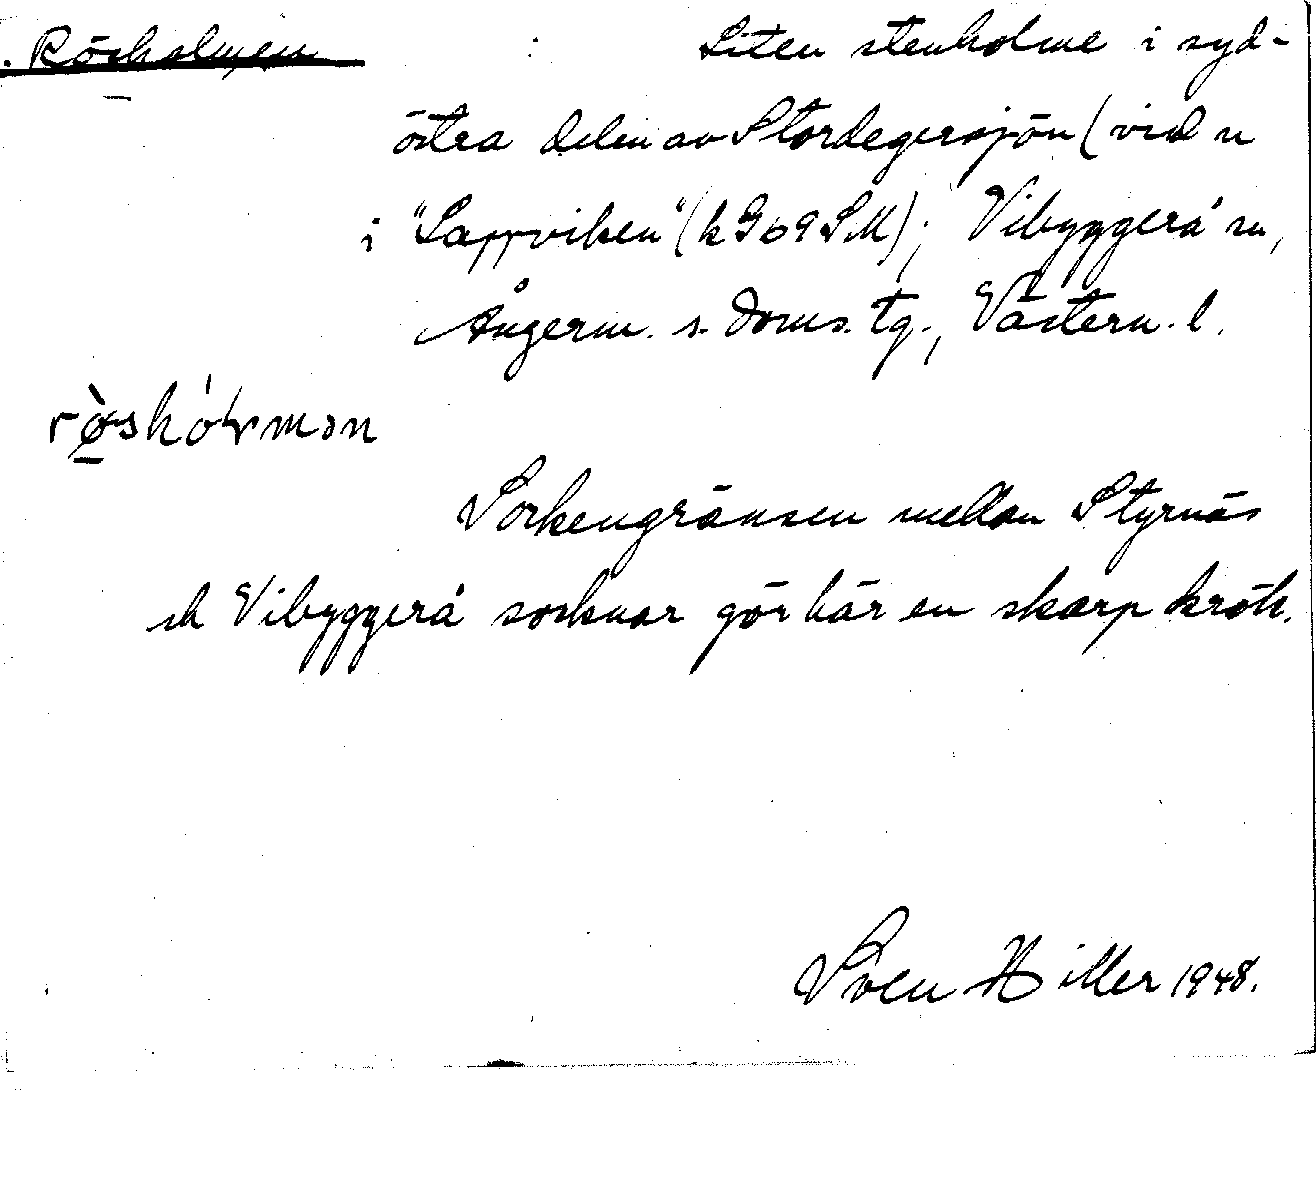 . Rösholmen : Liten stenholme i syd-
östra delen av Stordegersjön (vid n
i "Lappviken" (k G 69 SM); Vibyggerå sn,
Ångerm. s. doms. tg., Västern. l.
Sockengränsen mellan Styrnäs
ch Vibyggerå socknar gör här en skarp krök.
Sven Hiller 1948.